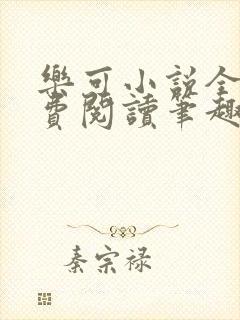 樂可小説全
費閱讀筆趣
秦宗禄